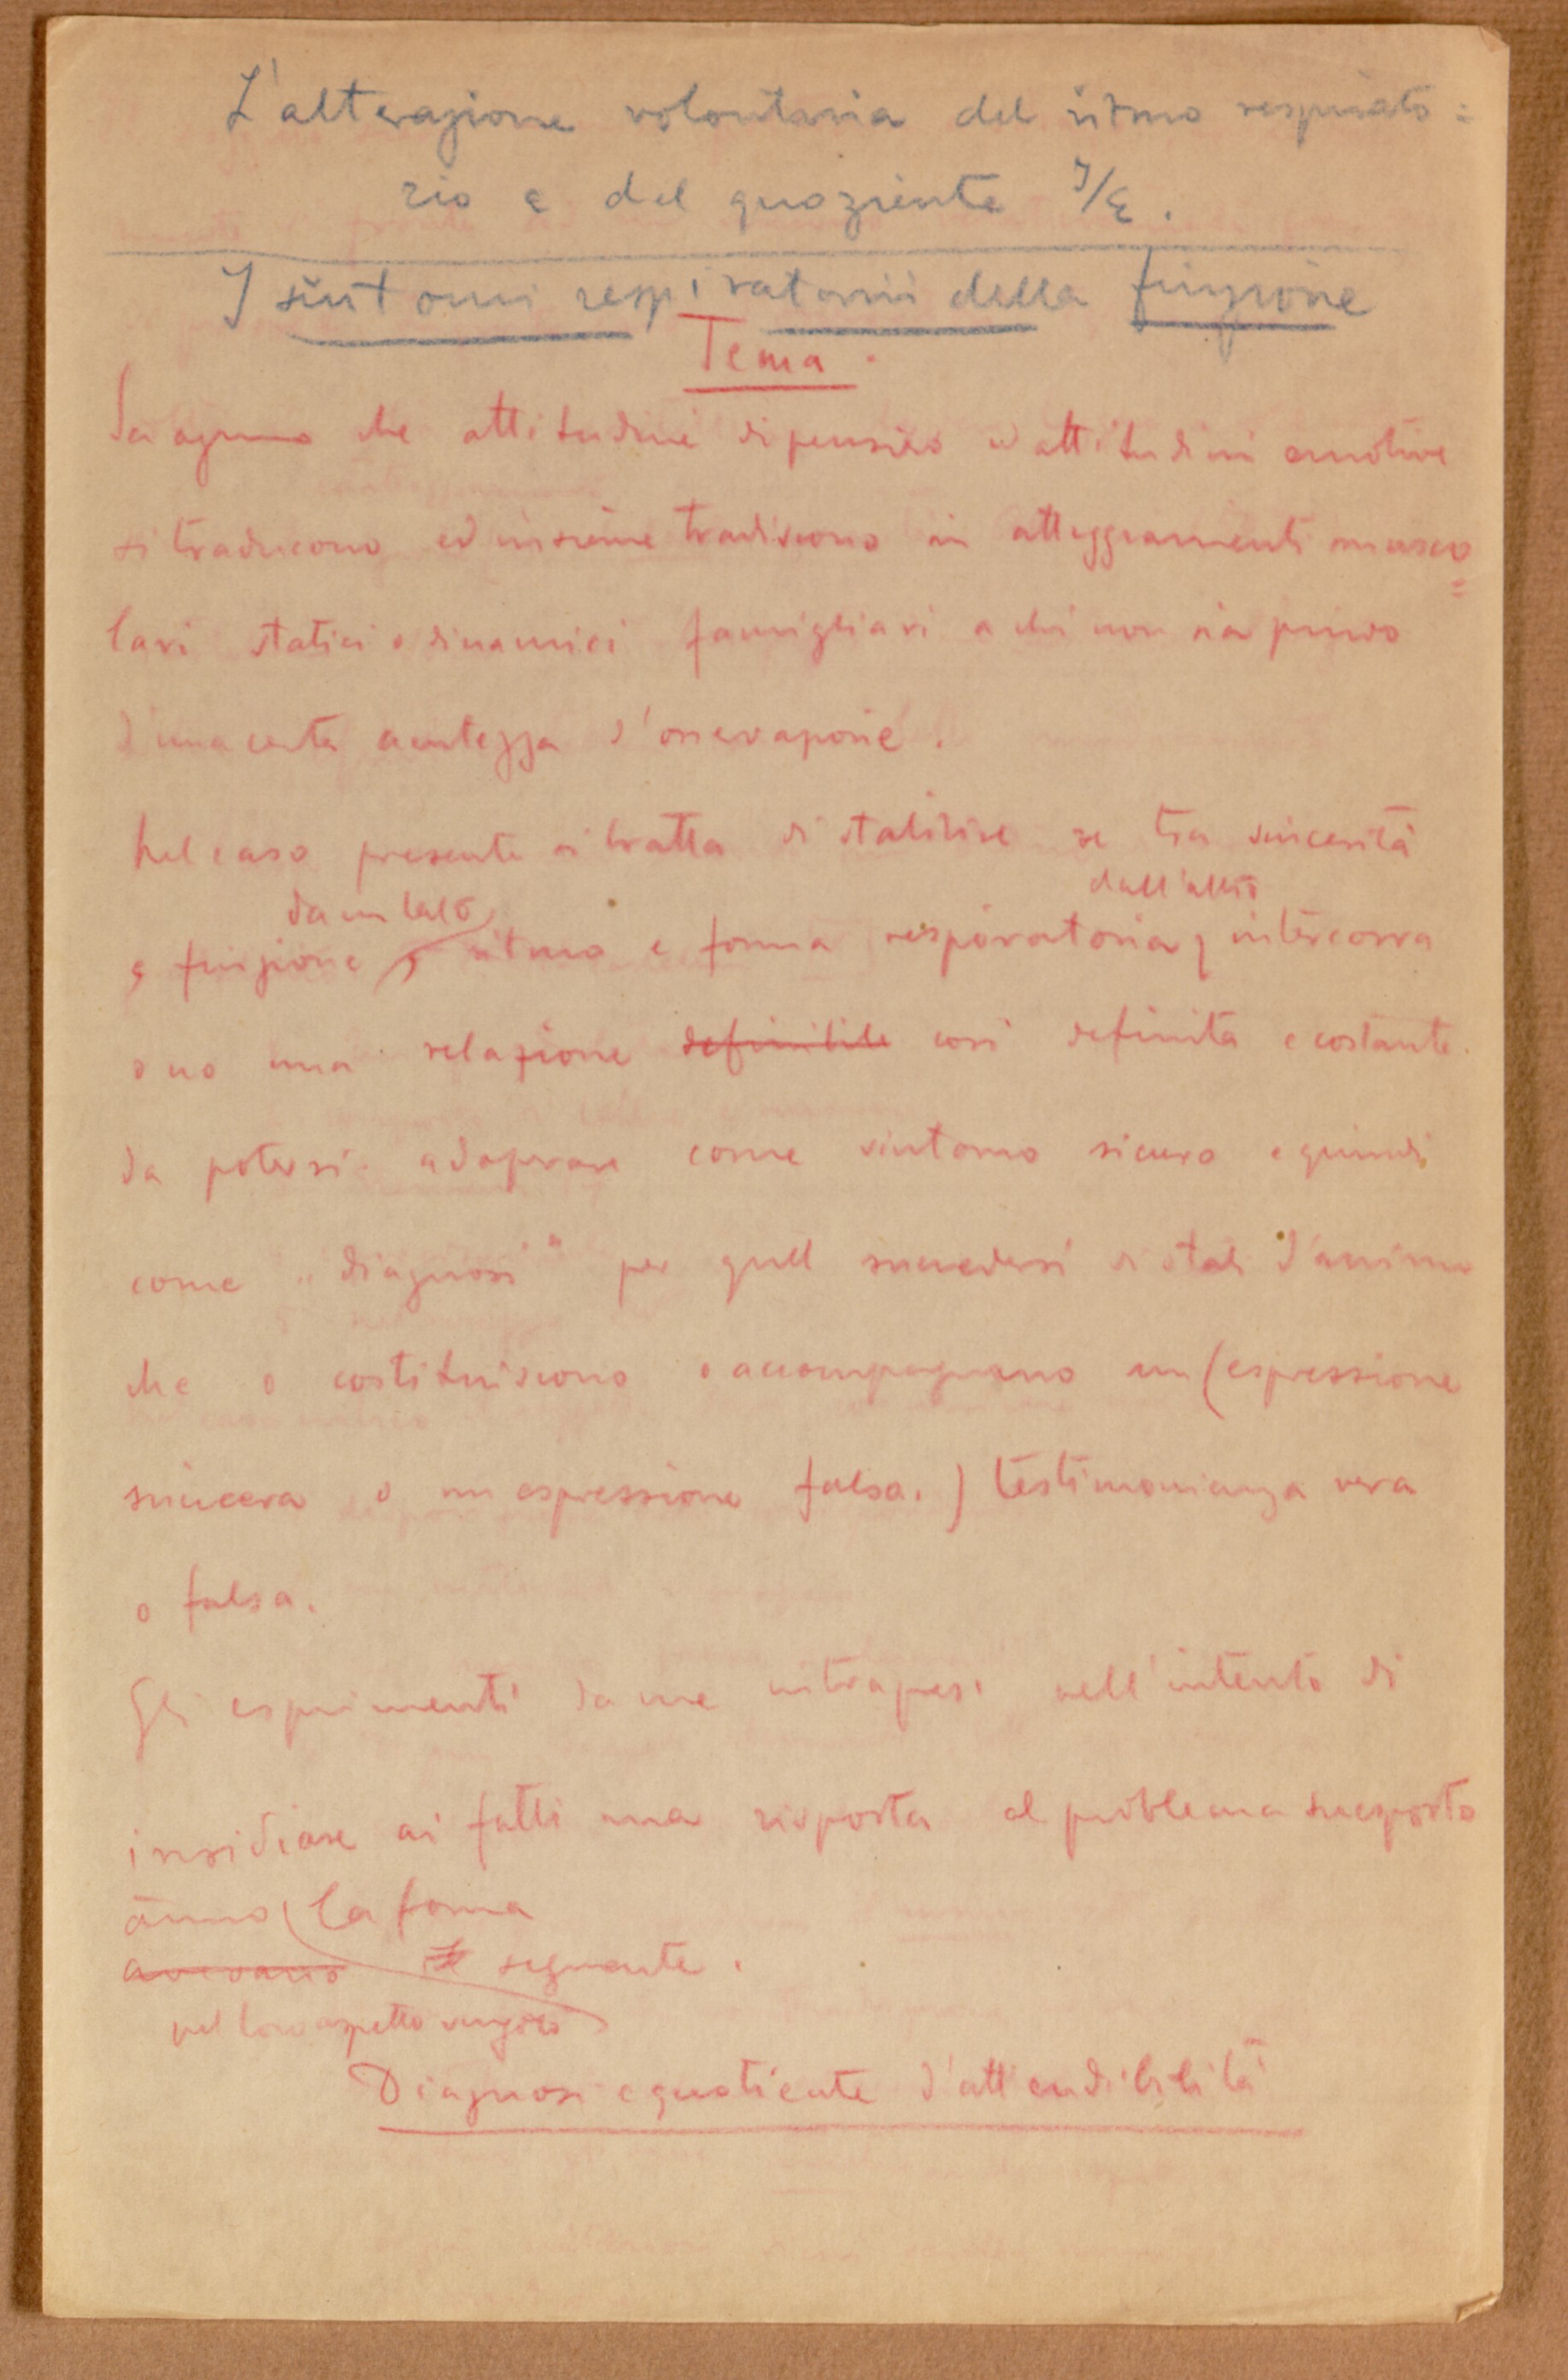 L'alterazione volontaria del ritmo respirato=
rio e del quoziente I/E.
I sintomi respiratorii della finzione
Tema.
Sa ognuno che attitudini di pensiero ed attitudini emotive
si traducono ed insieme tradiscono in atteggiamenti musco=
lari statici o dinamici famigliari a chi non sia privo
d'una certa acutezza d'osservazione.
Nel caso presente si tratta di stabilire se tra sincerità
da un lato dall'altro
e finzione, ritmo e forma respiratoria, intercorra
o no una relazione definibile così definita e costante
da potersi adoprare come sintomo sicuro e quindi
come „diagnosi“ per quell succedersi di stati d'animo
che o costituiscono o accompagnano un (espressione
sincera o un espressione falsa.) testimonianza vera
o falsa.
Gli esperimenti da me intrapresi nell'intento di
insidiare ai fatti una risposta al problema suesposto
ànno la forma
avevano seguente.
nel loro aspetto
Diagnosi e quotiente d'attendibilità